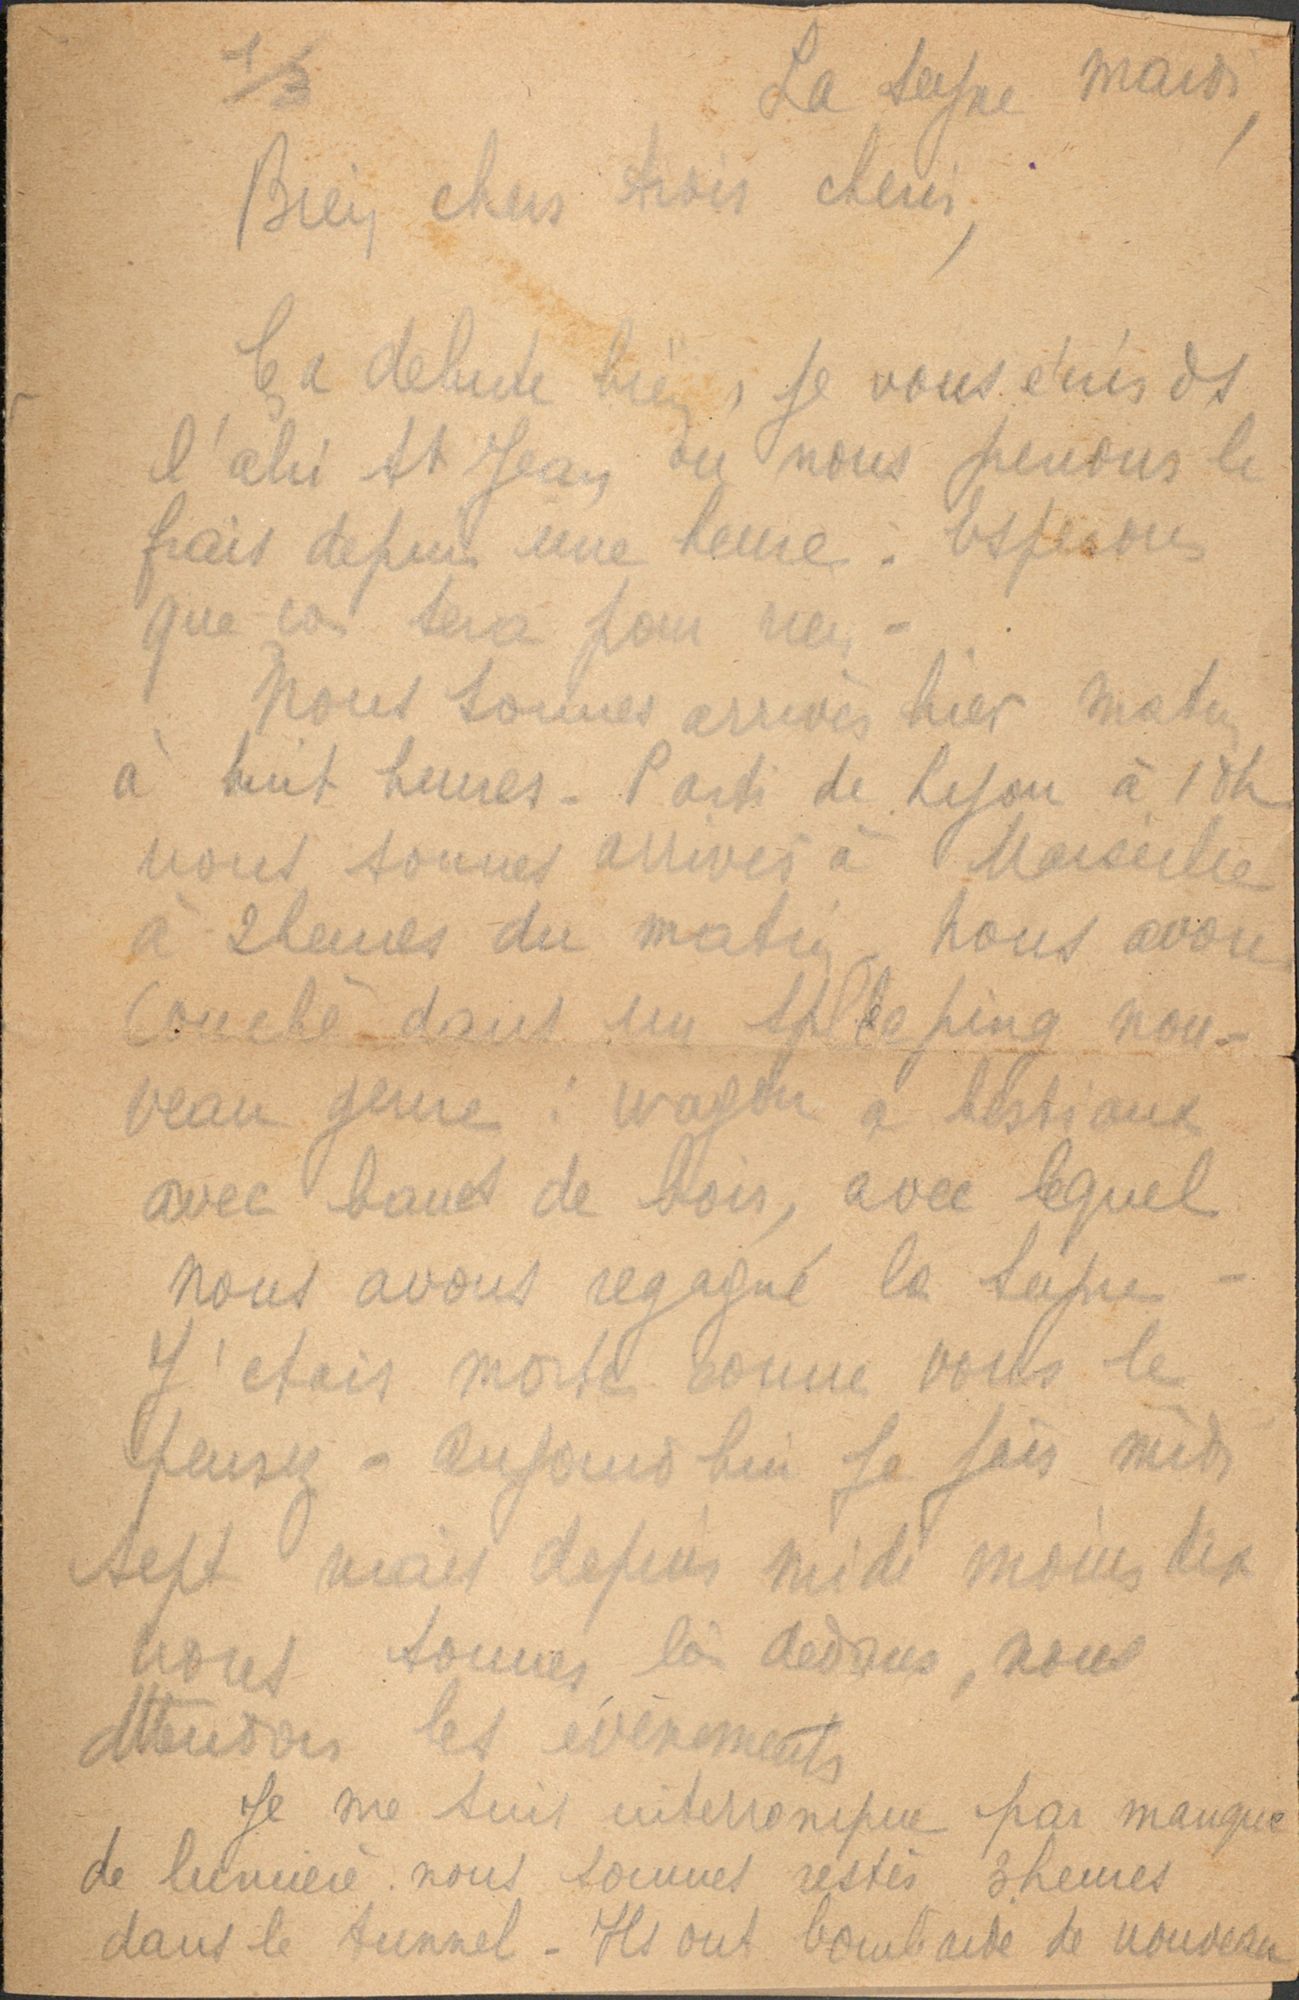 1/3
La Seyne Mardi,
Bien chers trois cheris,
Ça debute bien, je vous écris ds
l'abri St Jean ou nous prenons le
frais depuis une heure. Esperons
que ça sera pour rien -
Nous sommes arrivés hier matin
à huit heures - Parti de Lyon à 18h
nous sommes arrivés à Marseille
à 2 heures du matin, nous avons
couché dans un spleeping nou-
veau genre : wagon a bestiaux
avec bancs de bois, avec lequel
nous avons regagné la Seyne -
J'etais morte comme vous le
pensez - Aujourd hui je fais midi
sept mais depuis midi moins dix
nous sommes là dedans, nous
attendons les évènements
Je me suis interrompue par manque
de lumière. nous sommes restés 3 heures
dans le tunnel - Ils ont bombardé de nouveau